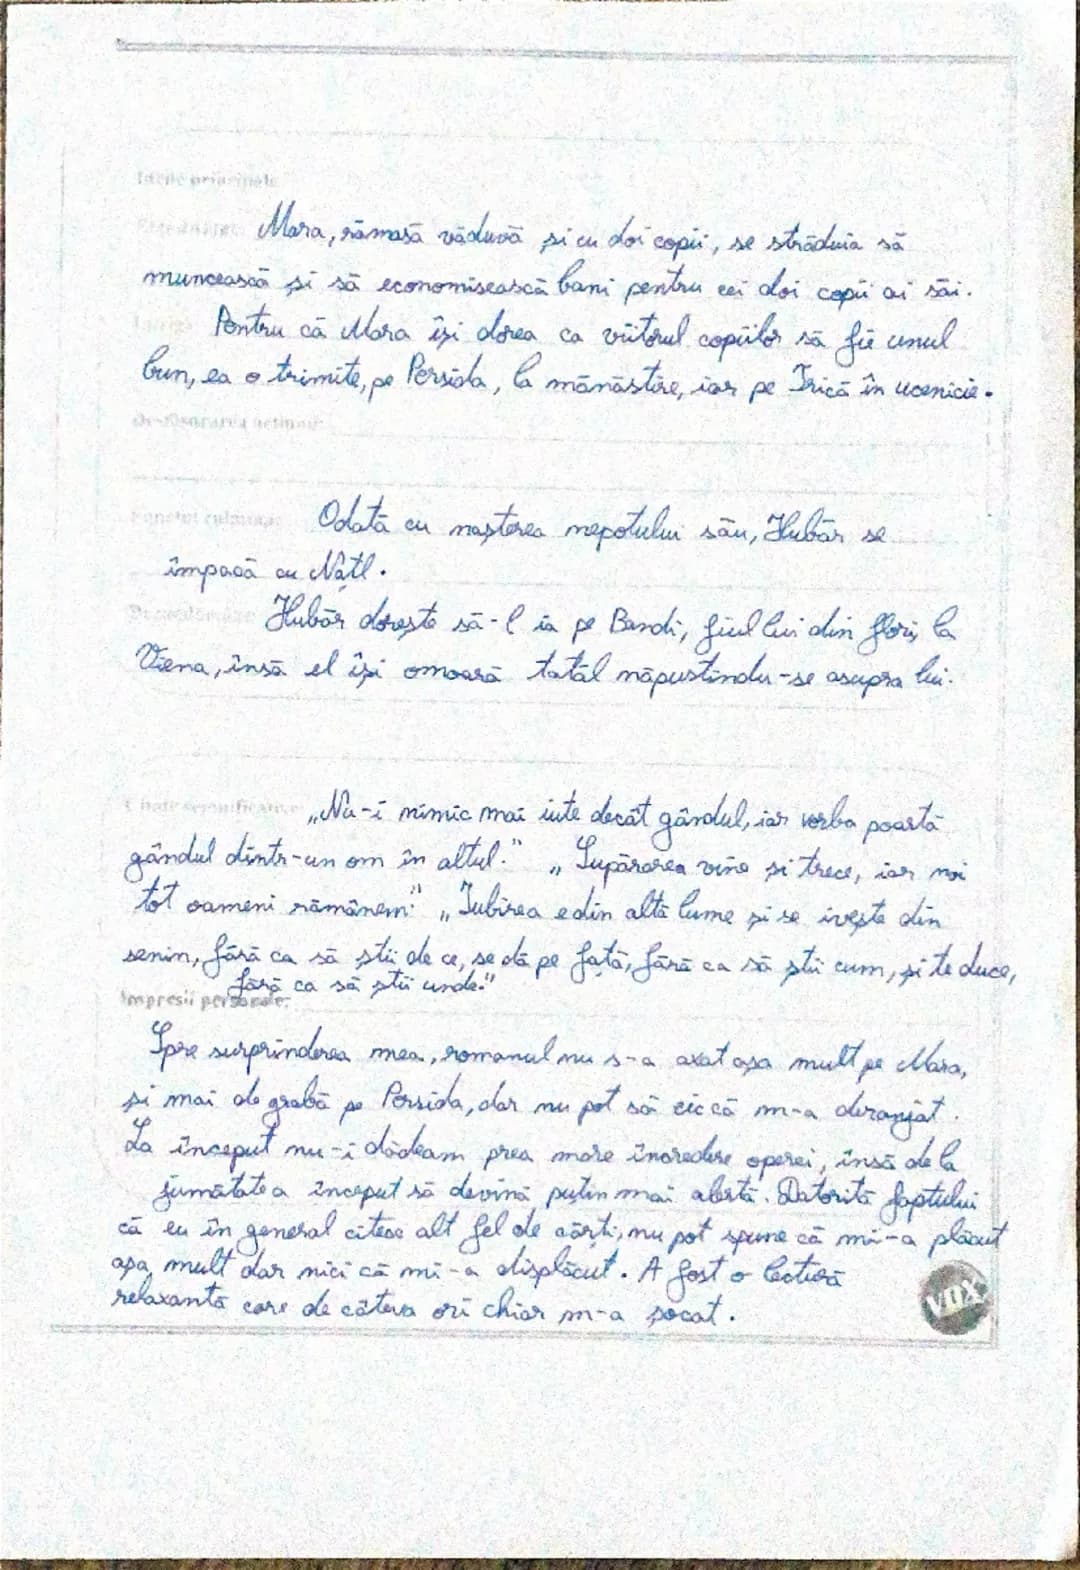 Idene principale
Mara, rămasă văduvă și cu doi copii, se străduia să
muncească și să economisească bani pentru cei doi copii ai săi.
Pentru că Mara își dorea ca viitorul copiilor să fie unul
bun, ea o trimite, pe Persida, la mănăstire, iar pe Trică în ucenicie.
Desfășurarea acțiunii:
Punctul culminant
Odată cu nașterea nepotului său, Hubăr se
împacă cu Națl.
Deznodământ
Hubăr dorește să-l ia pe Bandi, fiul lui din flori, la
Viena, însă el își omoară tatăl năpustindu-se asupra lui.
Citate semnificative:
„Nu-i nimic mai iute decât gândul, iar vorba poartă
gândul dintr-un om în altul." „Supărarea vine și trece, iar noi
tot oameni rămânem." „Iubirea e din altă lume și se ivește din
senin, fără ca să știi de ce, se dă pe față, fără ca să știi cum, și te duce,
fără ca să știi unde."
Impresii personale:
Spre surprinderea mea, romanul nu s-a axat așa mult pe Mara,
și mai de grabă pe Persida, dar nu pot să zic că m-a deranjat.
La început nu-i dădeam prea mare încredere operei, însă de la
jumătate a început să devină puțin mai alertă. Datorită faptului
că eu în general citesc alt fel de cărți, nu pot spune că mi-a plăcut
așa mult dar nici că mi-a displăcut. A fost o lectură
relaxantă care de câteva ori chiar m-a șocat.
VOX